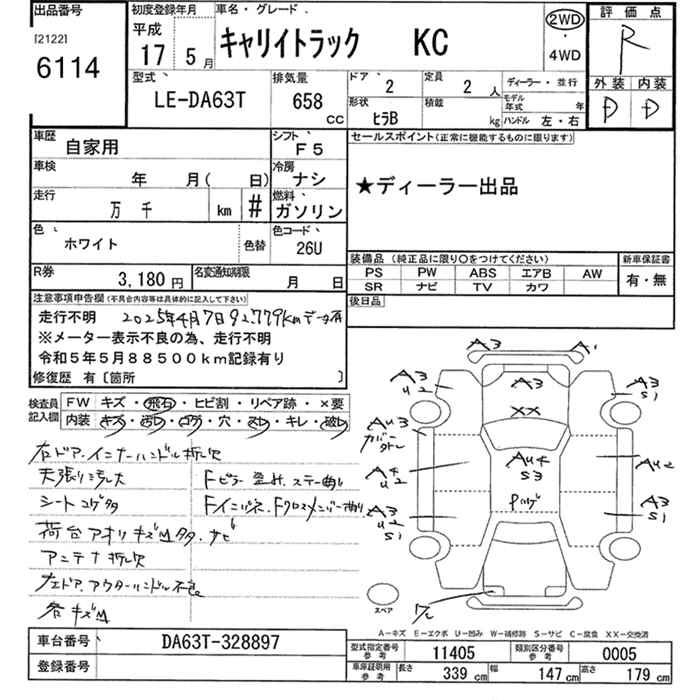 出品番号
[2122]
6114
初度登録年月
平成
17 5月
車名・グレード
キャリイトラック KC
2WD
・
4WD
評価点
R
外装 内装
D D
型式
LE-DA63T
排気量
658
CC
ドア
2
定員
2 人
形状
ヒラB
積載
kg
ディーラー・並行
モデル年式 年
ハンドル 左・右
車歴
自家用
シフト
F5
車検
年 月( 日)
冷房
ナシ
走行
万 千 km #
燃料
ガソリン
色
ホワイト
色替
色コード
26U
R券
3,180 円
名変通知期限
月 日
セールスポイント(正常に機能するものに限ります)
★ディーラー出品
装備品 (純正品に限り○をつけてください)
PS PW ABS エアB AW
SR ナビ TV カワ
新車保証書
有・無
後日品
注意事項申告欄(不具合内容等は具体的に記入して下さい)
走行不明 2025年4月7日92779kmデータ有
※メーター表示不良の為、走行不明
令和5年5月88500km記録有り
修復歴 有〔箇所 〕
検査員記入欄
FW キズ・飛石・ヒビ割・リペア跡・×要
内装 キズ・汚レ・コゲ・穴・スレ・キレ・破レ
右ドア.インナーハンドル折レ欠
天張リ汚レ大
シートコゲ多
荷台アオリキズM多.サビ
アンテナ折レ欠
左ドア.アウターハンドル不良
各キズM
A3 A1
A3 U2
A3
A3 S1
XX
AU3
AU4 S3
AU4 U2
AU2
A3 U2 S1
A3 S1
スペア
A-キズ E-エクボ U-凹み W-補修跡 S-サビ C-腐食 XX-交換済
車台番号
DA63T-328897
登録番号
型式指定番号 参考
11405
類別区分番号 参考
0005
車庫証明用 参考
長さ 339 cm
幅 147 cm
高さ 179 cm